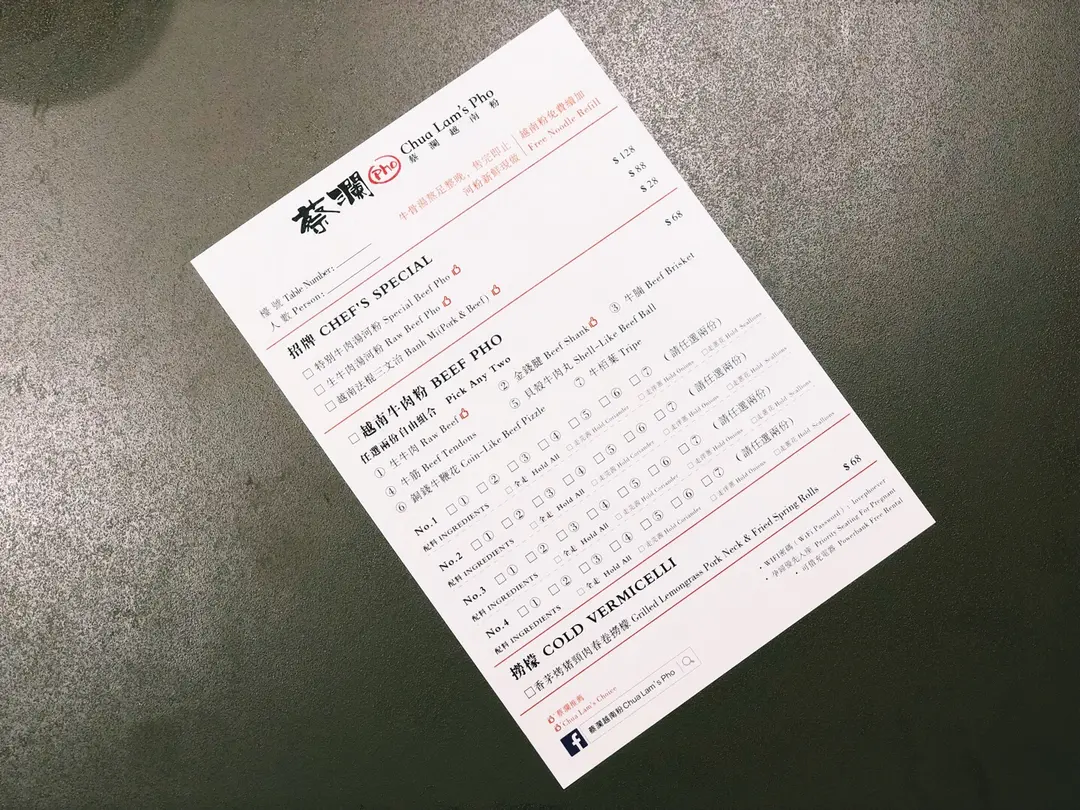 蔡瀾 Pho Chua Lam's Pho
蔡瀾越南粉
牛骨湯熬足整晚，售完即止
河粉新鮮現做
越南粉免費續加
Free Noodle Refill
檯號 Table Number:
人數 Person:
招牌 CHEF'S SPECIAL
□ 特別牛肉湯河粉 Special Beef Pho $128
□ 生牛肉湯河粉 Raw Beef Pho $88
□ 越南法棍三文治 Banh Mi(Pork & Beef) $28
□ 越南牛肉粉 BEEF PHO $68
任選兩份自由組合 Pick Any Two
① 生牛肉 Raw Beef ② 金錢腱 Beef Shank ③ 牛腩 Beef Brisket
④ 牛筋 Beef Tendons ⑤ 貝殼牛肉丸 Shell-Like Beef Ball
⑥ 銅錢牛鞭花 Coin-Like Beef Pizzle ⑦ 牛栢葉 Tripe
No.1 □① □② □③ □④ □⑤ □⑥ □⑦ (請任選兩份)
配料 INGREDIENTS □全走 Hold All □走芫茜 Hold Coriander □走洋蔥 Hold Onions □走蔥花 Hold Scallions
No.2 □① □② □③ □④ □⑤ □⑥ □⑦ (請任選兩份)
配料 INGREDIENTS □全走 Hold All □走芫茜 Hold Coriander □走洋蔥 Hold Onions □走蔥花 Hold Scallions
No.3 □① □② □③ □④ □⑤ □⑥ □⑦ (請任選兩份)
配料 INGREDIENTS □全走 Hold All □走芫茜 Hold Coriander □走洋蔥 Hold Onions □走蔥花 Hold Scallions
No.4 □① □② □③ □④ □⑤ □⑥ □⑦ (請任選兩份)
配料 INGREDIENTS □全走 Hold All □走芫茜 Hold Coriander □走洋蔥 Hold Onions □走蔥花 Hold Scallions
撈檬 COLD VERMICELLI $68
□香茅烤豬頸肉春卷撈檬 Grilled Lemongrass Pork Neck & Fried Spring Rolls
• WIFI密碼 (WiFi Password): lovephoever
• 孕婦優先入座 Priority Seating For Pregnant
• 可借充電器 Powerbank Free Rental
蔡瀾推薦
Chua Lam's Choice
f 蔡瀾越南粉Chua Lam's Pho